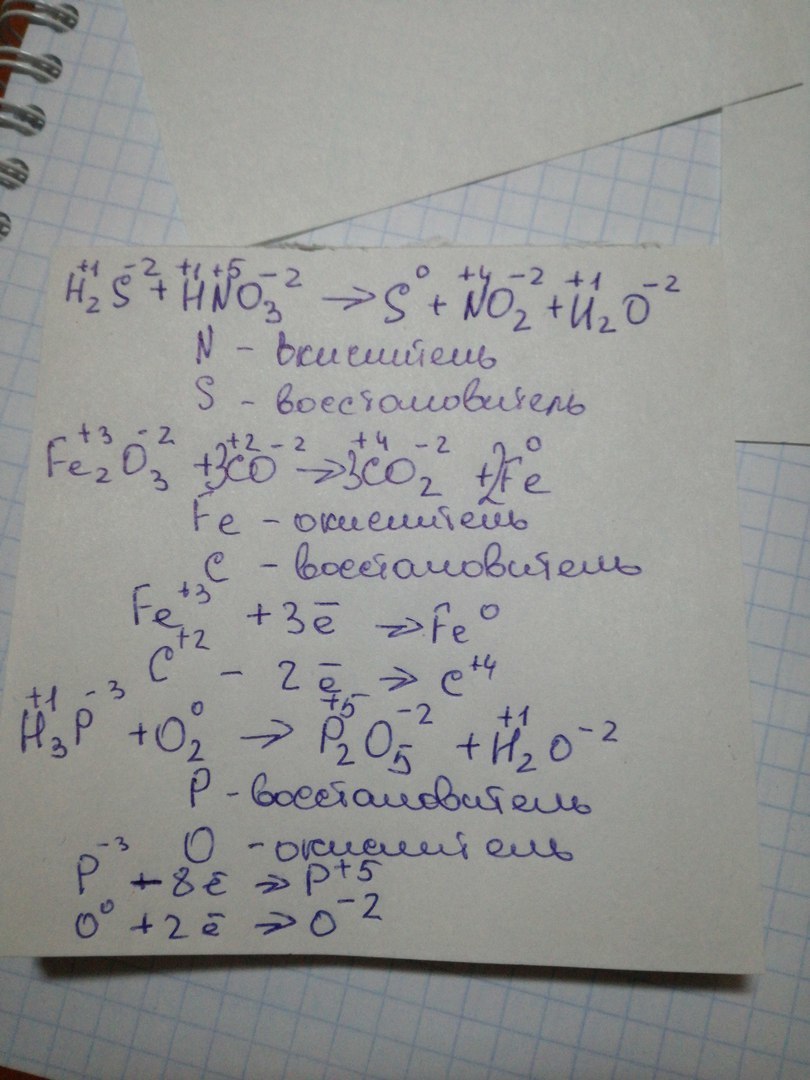 H₂⁺¹S⁻² + H⁺¹N⁺⁵O₃⁻² → S⁰ + N⁺⁴O₂⁻² + H₂⁺¹O⁻²
N - вкислитель
S - восстановитель
Fe₂⁺³O₃⁻² + 3C⁺²O⁻² → 3C⁺⁴O₂⁻² + 2Fe⁰
Fe - окислитель
C - восстановитель
Fe⁺³ + 3ē → Fe⁰
C⁺² - 2ē → C⁺⁴
H₃⁺¹P⁻³ + O₂⁰ → P₂⁺⁵O₅⁻² + H₂⁺¹O⁻²
P - восстановитель
O - окислитель
P⁻³ - 8ē → P⁺⁵
O⁰ + 2ē → O⁻²